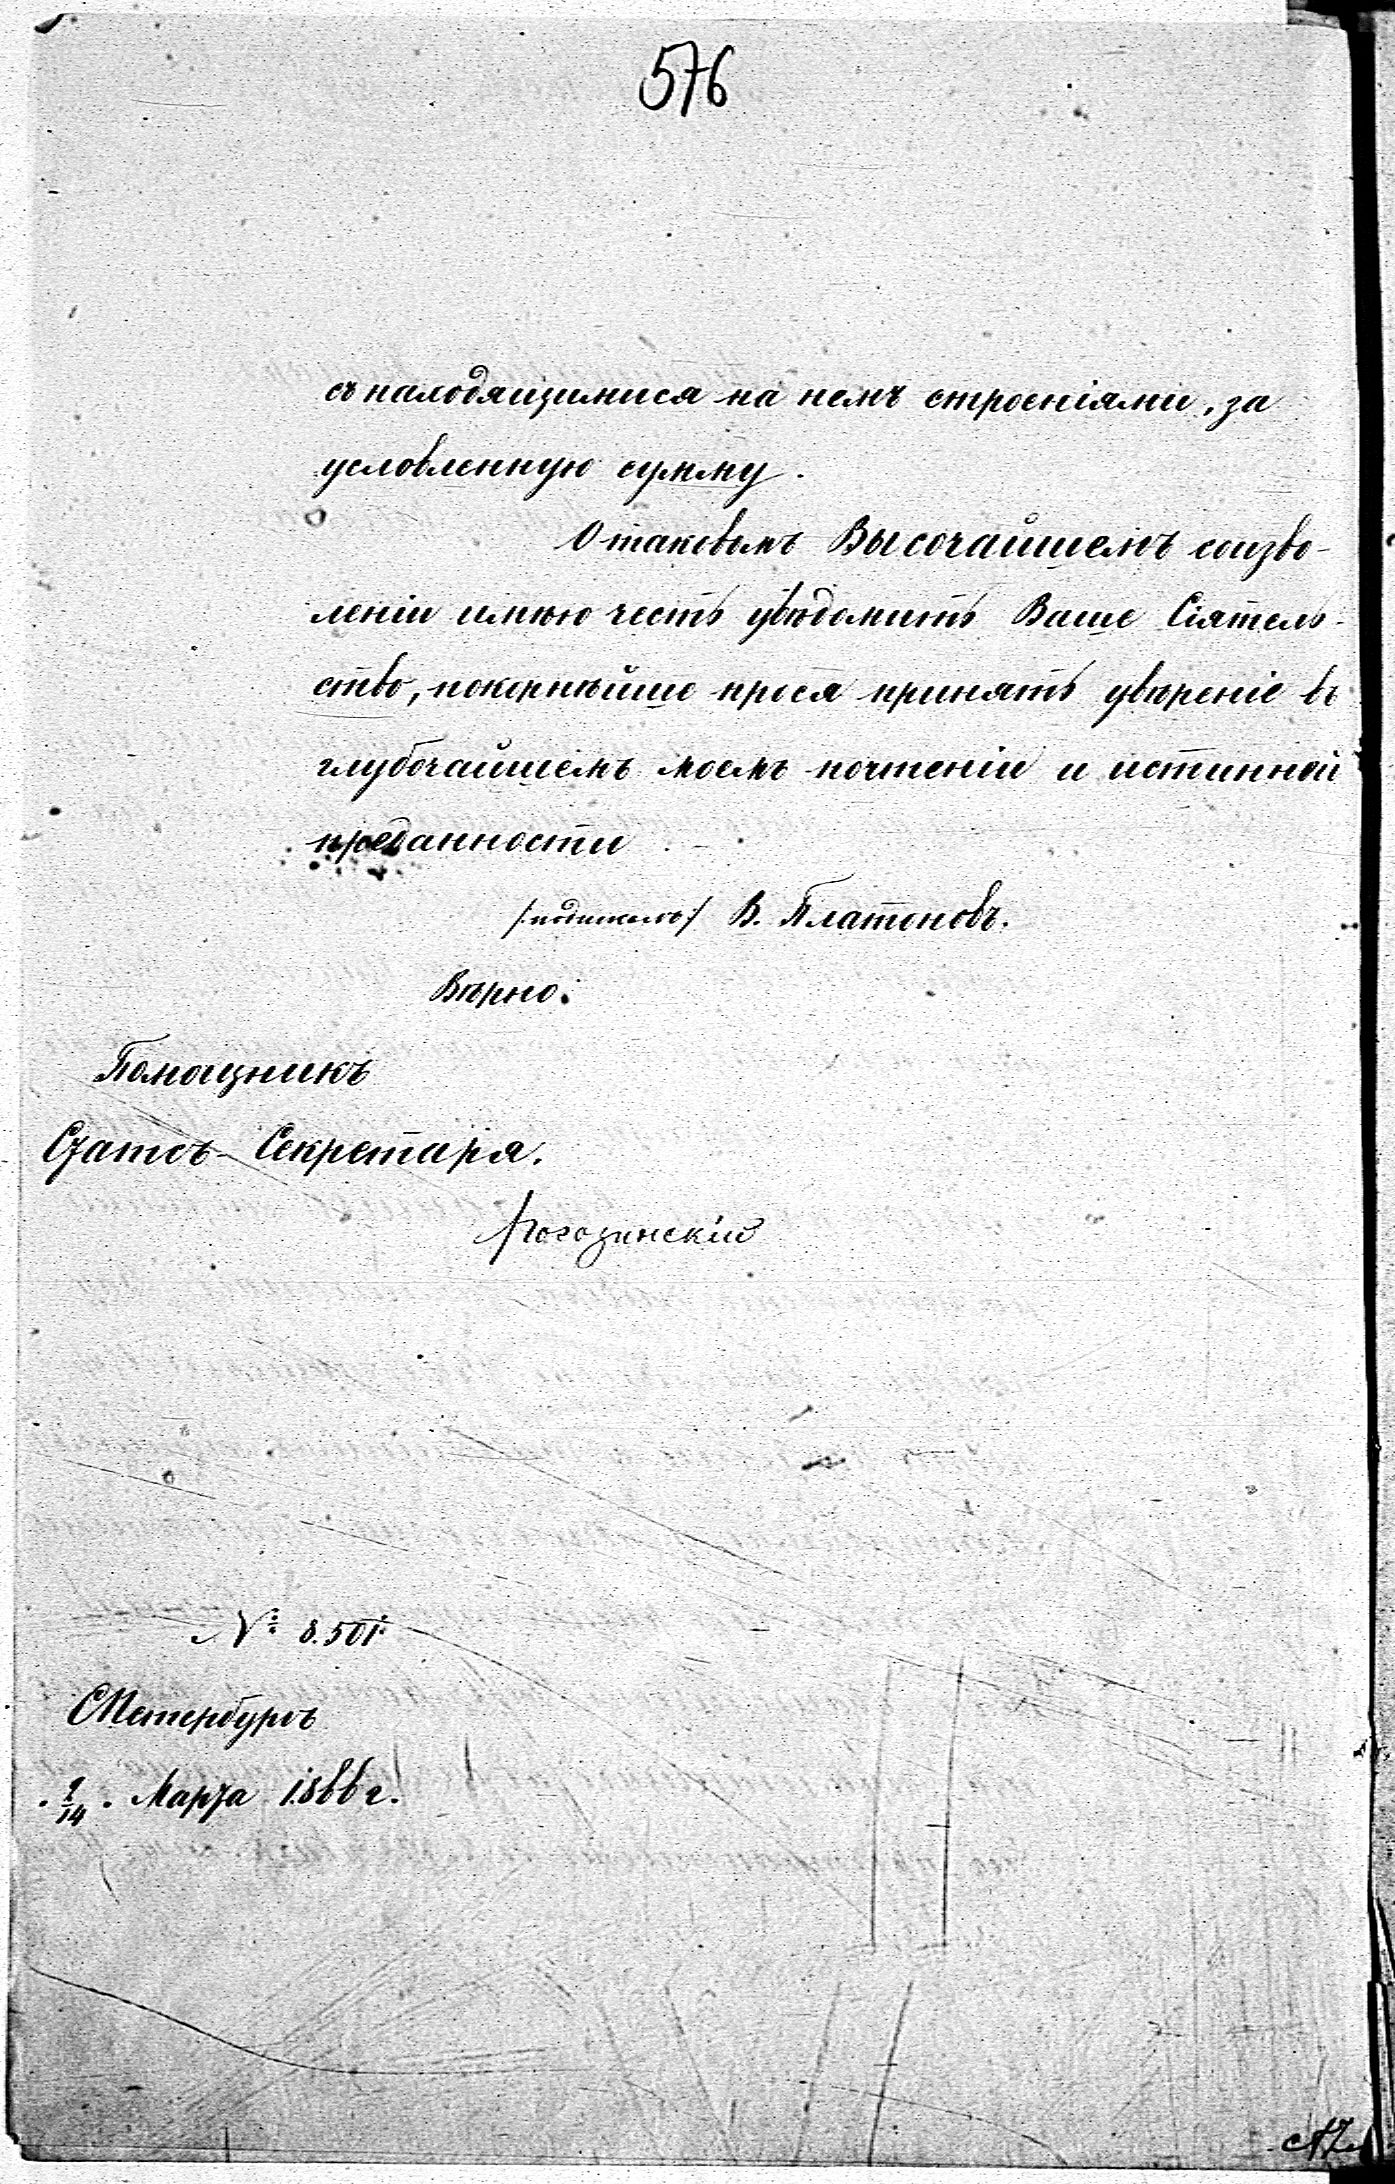 576
съ находящимися на немъ строеніями, за
условленную сумму.
О таковомъ Высочайшемъ соизво-
леніи имѣю честь увѣдомить Ваше Сіятель-
ство, покорнѣйше прося принять увѣреніе въ
глубочайшемъ моемъ почтеніи и истинной
преданности
/подписалъ/ В. Платоновъ.
Вѣрно:
Помощникъ
Статсъ-Секретаря.
Рогозинскій
№ 8.501.
СПетербургъ
2/14. Марта 1866 г.